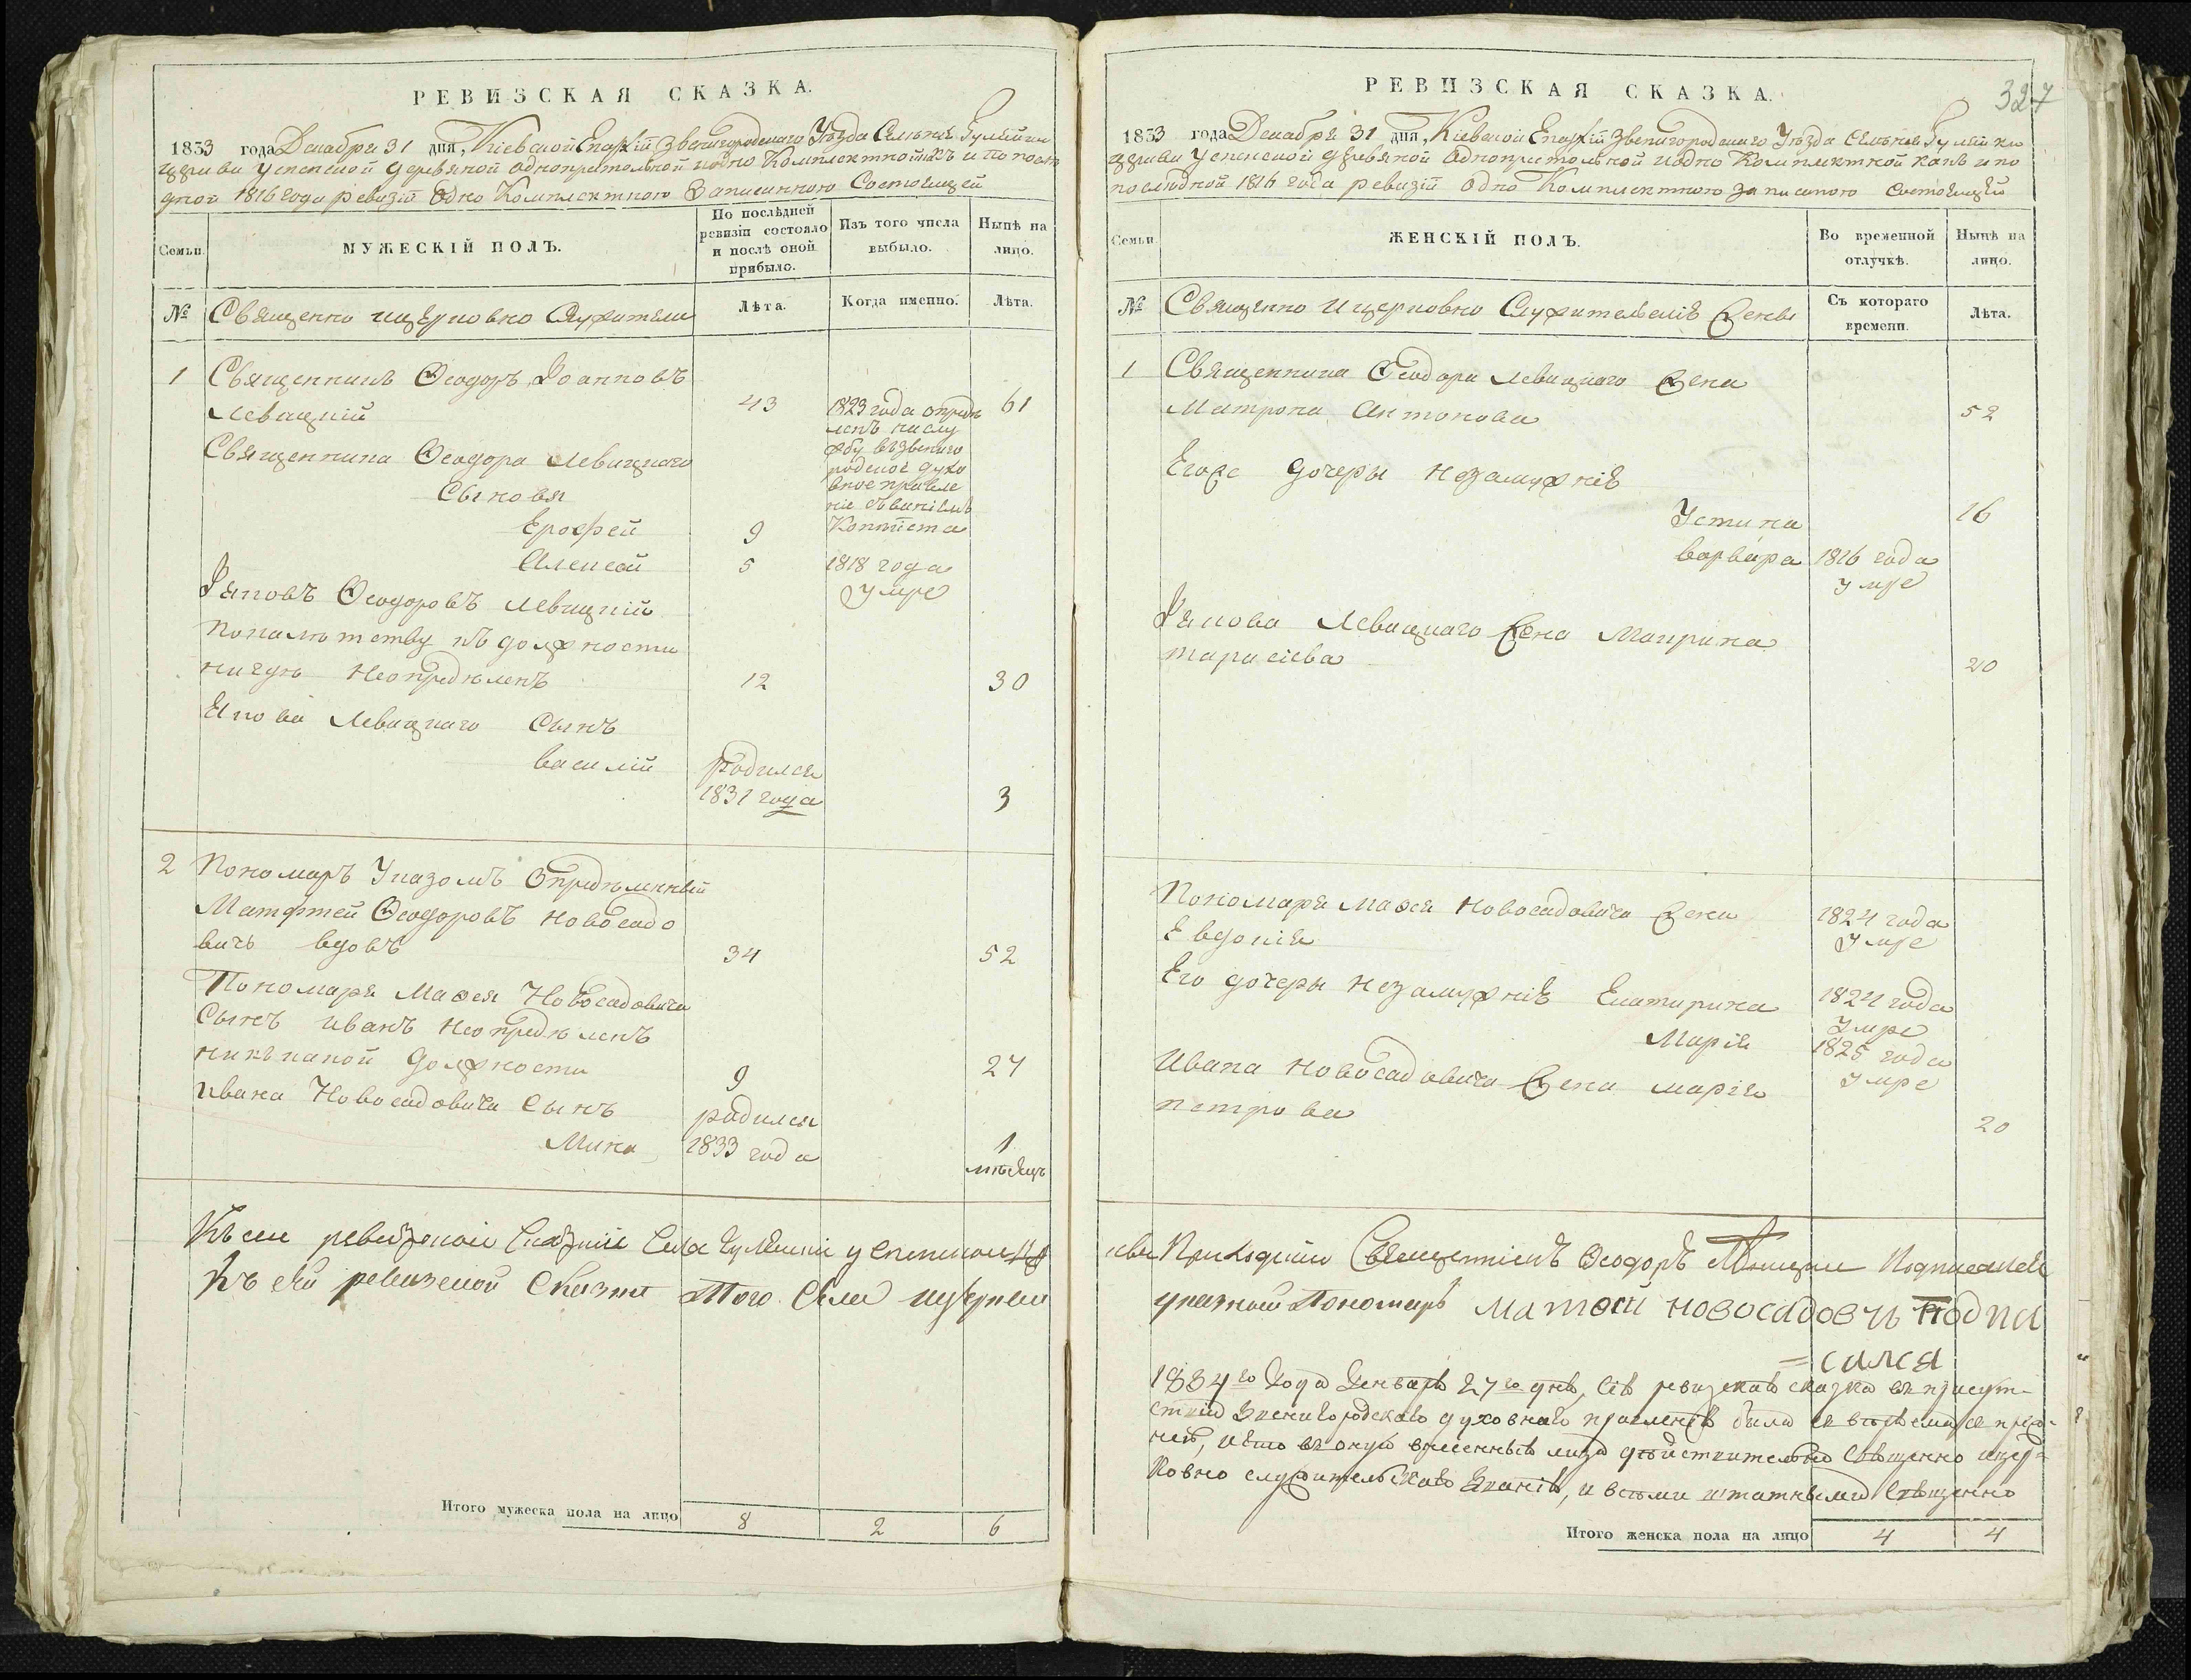 РЕВИЗСКАЯ СКАЗКА.
1833 года Декабря 31 дня, Кіевской Епархіи Звенигородскаго Уѣзда Селенія Гулайки
церкви Успенской деревяной однопрестольной и одно Комплектной какъ и по послѣ
дной 1816 года ревизіи Одно Комплектною Записанною Состоящей
Семьи.
МУЖЕСКІЙ ПОЛЪ.
По послѣдней
ревизіи состояло
и послѣ оной
прибыло.
Изъ того числа
выбыло.
Нынѣ на
лицо.
№
Священно ицерковно Служители
Лѣта.
Когда именно.
Лѣта.
1 Священникъ Ѳеодоръ Іоанновъ
Левицкій 43 61
1823 года опредѣ
ленъ на слу
жбу въ Звениго
родское духо
вное правле
ніе
Копіиста
Священника Ѳеодора Левицкаго
Сыновя
Ерофей 9
Алексей 5 1818 года
умре
Яковъ Ѳеодоровъ Левицкій
помалѣтству къ должности
никую Неопредѣленъ 12 30
Якова Левицкаго Сынъ
Василій родился
1831 года 3
2 Пономаръ Указомъ Опредѣленный
Матфтей Ѳеодоровъ Новосадо
вичъ вдовъ 34 52
Пономаря Маѳея Новосадовича
Сынъ Иванъ Неопредѣленъ
никъ какой Должности 9 27
Ивана Новосадовича Сынъ родился
Мина 1833 года 1
мѣсяцъ
Къ сей ревизской Сказки Села Гулайки Успенской
Къ сей ревизской Сказки Того Села церкви
Итого мужеска пола на лицо 8 2 6
РЕВИЗСКАЯ СКАЗКА.
327
1833 года Декабря 31 дня, Кіевской Епархіи Звенигородскаго Уѣзда Селенія Гулайки
церкви Успенской деревяной Однопрестольной иодно Комплектной какъ и по
послѣдной 1816 года ревизіи Одно Комплектною записаною состоящей
Семьи.
ЖЕНСКІЙ ПОЛЪ.
Во временной
отлучкѣ.
Нынѣ на
лицо.
№
Священно Ицерковно Служителскіе Жены
Съ котораго
времени.
Лѣта.
1 Священника Ѳеодора Левицкаго Жена
Матрона Антонова 52
Егоже дочеры незамужніе
Устина 16
Варвара 1816 года
умре
Якова Левицкаго Жена Макрина
Тарасіева 20
Пономаря Маѳея Новосадовича Жена 1824 года
Евдокія умре
Его дочеры незамужніе Екатирина 1824 года
умре
Марія 1825 года
умре
Ивана Новосадовича Жена Марія
Петрова 20
Приходскій Священникъ Ѳеодоръ Левицкій Подписался
указной Пономарь Матѳей Новосадовчъ Подпи
=сился
1834го Года Генваря 27го дня, сія ревизская сказка въ присут-
ствіи Звенигородскаго духовнаго правленія была
въ оную внесенныя лица дѣйствительно Священно ицер=
ковно служительскаго Званія, и всѣми штатными Священно
Итого женска пола на лицо 4 4